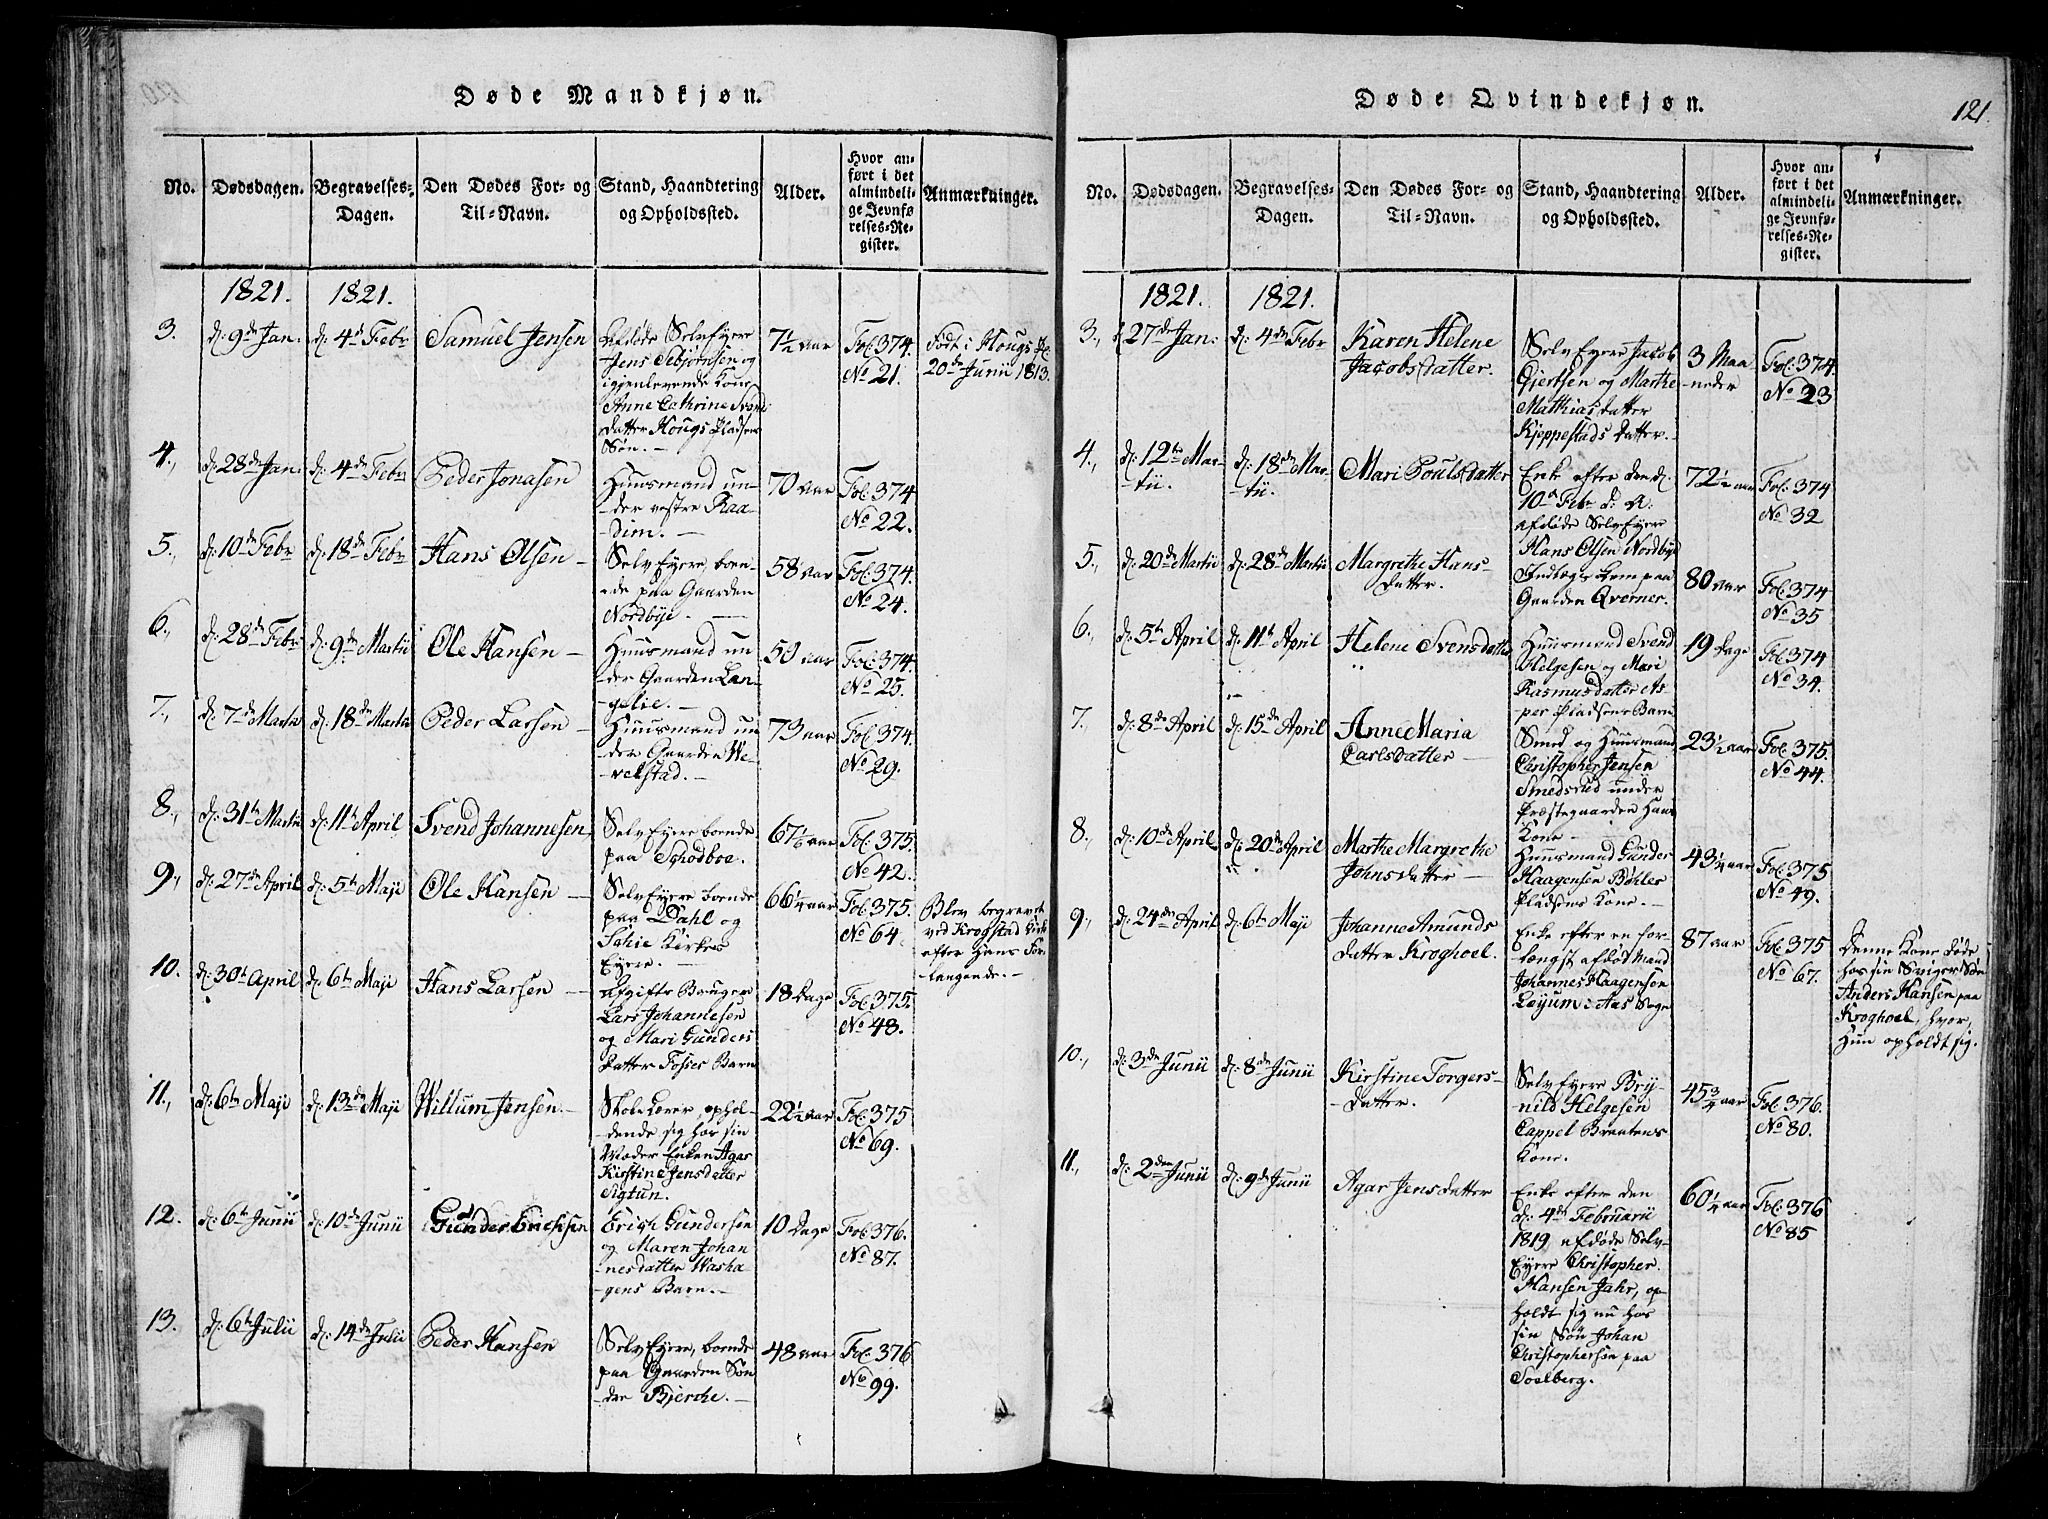 Døde Mandkjøn.
No. Dødsdagen. Begravelses-Dagen. Den Dødes For- og Til-Navn. Stand, Haandtering og Opholdssted. Alder. Hvor anført i det almindelige Jevnførelses-Register. Anmærkninger.
1821. 1821.
3. d: 9de Jan: d: 4de Febr Samuel Jensen
Afdøde SelvEyere
Jens Tebjørnsen og
igjenlevende Kone
Anne Cathrine Svends
datter Hougs Pladsens
Søn.
7½ aar
Fol: 374.
No 21.
Født i Hougs Pl:
20de Junii 1813.
4., d: 28de Jan: d: 4de Febr Peder Jonasen
Huusmand un-
-der vestre Raa-
-dim.
70 aar
Fol: 374
No 22.
5., d: 10de Febr d: 18de Febr Hans Olsen
SelvEyere, boen-
-de paa Gaarden
Nordbye.
58 aar
Fol: 374.
No 24.
6., d: 28de Febr d: 9de Martii Ole Hansen
Huusmand un
der Gaarden Lan-
-gelie.
50 aar
Fol: 374.
No 25.
7., d: 7de Martii d: 18de Martii Peder Larsen
Huusmand un
der Gaarden We-
-velstad.
73 aar
Fol: 374.
No 29.
8., d: 31te Martii d: 11te April Svend Johannesen,
SelvEyere boende
paa Schodboe.
67⅙ aar
Fol: 375.
No 42.
9., d: 27de April d: 5te Maji Ole Hansen
SelvEyere boende
paa Dahl og
Schie Kirkes
Eyere.
66¼ aar
Fol: 375.
No 64.
Blev begravet
ved Krogstad Kirke
efter Hans For-
langende.
10. d: 30te April d: 6te Maji Hans Larsen
Afgifts Bruger
Lars Johannesen
og Mari Gunders
datter Fosses Barn
18 Dage
Fol: 375.
No 48.
11., d: 6te Maji d: 13de Maji Willum Jensen
SkoleLærer, ophol-
-dende sig hos sin
Moder Enken Agar
Kirstine Jensdatter
Sigtun.
22½ aar
Fol: 375
No 69.
12. d: 6te Junii d: 10de Junii Gunder Erichsen
Erich Gundersen
og Maren Johan
nesdatter Washa
-gens Barn.
10 Dage
Fol: 376.
No 87.
13. d: 6te Julii d: 14de Julii Peder Hansen
SelvEyere, boende
paa Gaarden Søn
dre Bjerche.
48 aar
Fol: 376
No 99.
Døde Qvindekjøn.
121.
No. Dødsdagen. Begravelses-Dagen. Den Dødes For- og Til-Navn. Stand, Haandtering og Opholdssted. Alder. Hvor anført i det almindelige Jevnførelses-Register. Anmærkninger.
1821. 1821.
3., d: 27de Jan: d: 4de Febr Karen Helene
Jacobsdatter.
SelvEyere Jacob
Gjertsen og Marthe
Mathiasdatter
Kjeppestads Datter.
3 Maa-
neder
Fol: 374.
No 23
4., d: 12te Mar-
tii. d: 18de Mar-
tii. Mari Poulsdatter
Enke efter den d:
10de Febr d: A:
afdøde SelvEyere
Hans Olsen Nordbye
72½ aar
Fol: 374
No 32
5., d: 20de Martii d: 28de Martii Margrethe Hans-
datter.
Indlægs Lem paa
Gaarden Qverner.
80 aar
Fol: 374
No 35
6., d: 5te April d: 11te April Helene Svensdatter
Huusmand Svend
Helgesen og Mari
Rasmusdatter As-
per Pladsens Barn
19 Dage
Fol: 374
No 34.
7., d: 8de April d: 15de April Anne Maria
Carlsdatter
Smed og Huusmand
Christopher Jensen
Smedsrud under
Præstegaarden Hans
Kone
23½ aar
Fol: 375.
No 44.
8., d: 10de April d: 20de April Marthe Margrethe
Johnsdatter
Huusmand Gunder
Haagensen Bøhler
Pladsens Kone.
43¼ aar
Fol: 375
No 49.
9., d: 24de April d: 6te Maji Johanne Amunds
datter Kroghoel.
Enke efter en for-
længst afdød Mand
Johannes Haagensen
Løyum i Aas Sogn
87 aar
Fol: 375
No 67.
Denne Kone døde
hos sin Sviger Søn
Anders Hansen paa
Kroghoel, hvor,
Hun opholdt sig.
10., d: 3de Junii d: 8de Junii Kirstine Torgers-
datter.
SelvEyere Bry-
nild Helgesen
Cappel Braatens
Kone.
45¾ aar
Fol: 376.
No 80.
11., d: 2den Junii d: 9de Junii Agar Jensdatter
Enke efter den
d: 4de Februarii
1819 afdøde Selv-
Eyere Christopher
Hansen Jahr, op-
holdt sig nu hos
sin Søn Johan
Christophersøn paa
Soelberg.
60¼ aar
Fol: 376
No 85